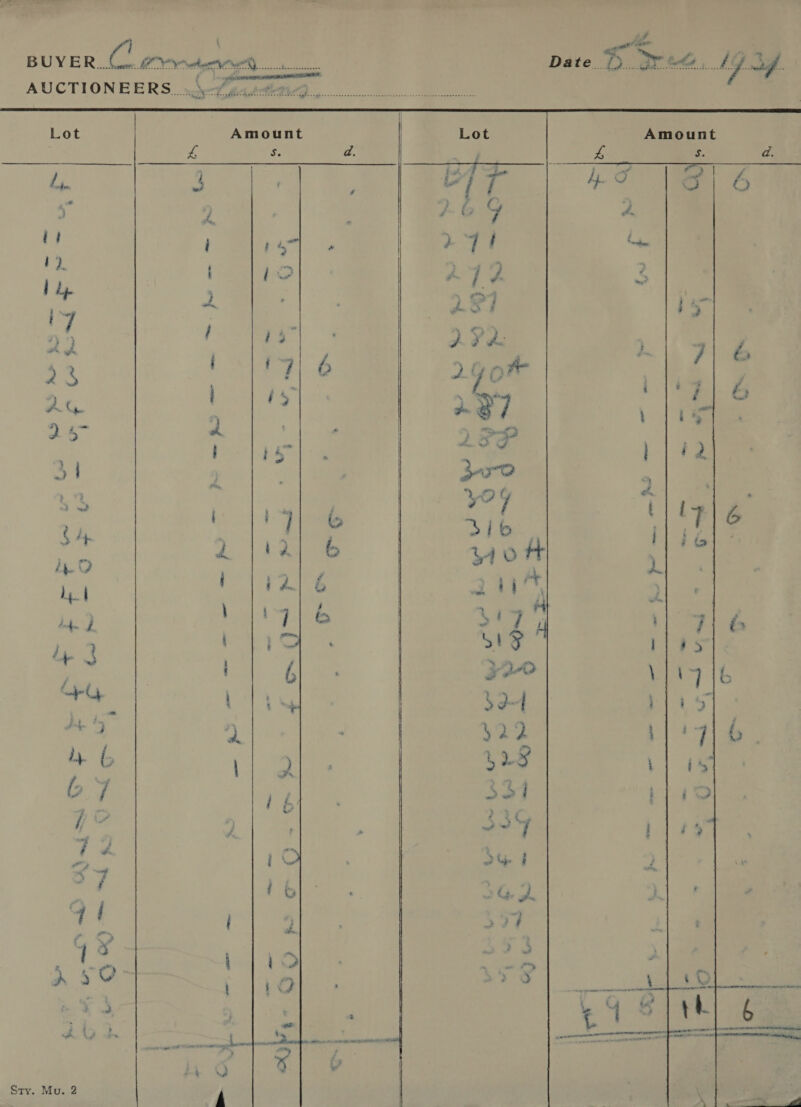 BUYER
Date 5 Dec. 1934
AUCTIONEERS
Lot Amount Lot Amount
£ s. d. £ s. d.
4 3 . .
5 2 . .
11 1 15 .
12 1 10
14 2 . .
17 1 15 .
22 1 17 6
23 1 15
24 2 . .
25 1 15 .
31 2 . .
33 1 17 6
34 2 12 6
40 1 12 6
41 1 17 6
42 1 10 .
43 1 6 .
44 1 14
45 2 . .
46 1 2 .
67 16
70 2 . .
72 10 .
87 16 .
91 1 2 .
98 1 10
250 1 10 .
B/F 48 8 6
269 2
271 4
272 3
281 15
282 2 7 6
1 17 6
287 1 15 .
288 1 12
300 2 . .
309 1 17 6
316 1 16
2 .
2 .
317A 1 7 6
1 15
320 1 17 6
324 1 15
322 1 17 6
328 1 15
331 1 10
339 1 15
341 2
342 2 . .
358 1 10
£98 14 6
Sty. Mu. 2